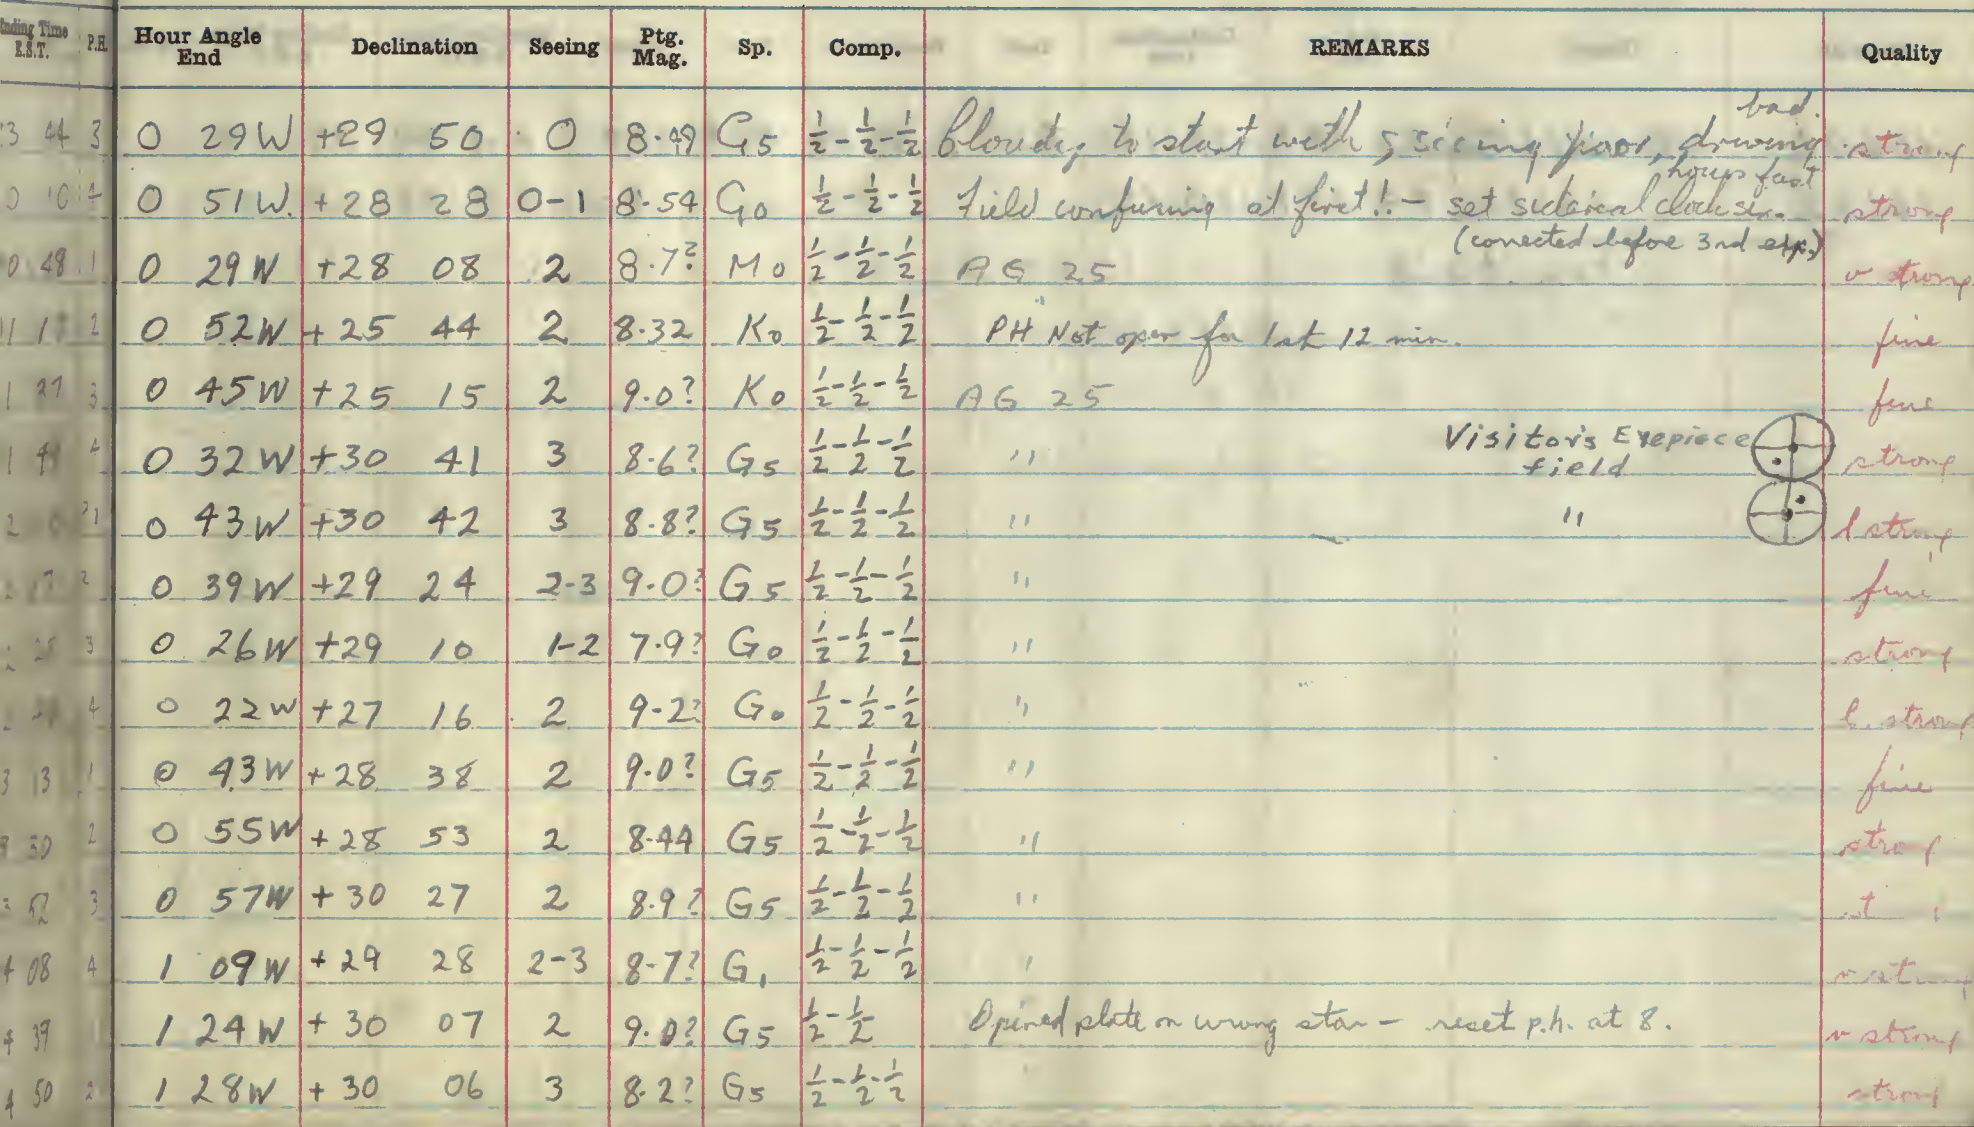 Ending Time E.S.T. P.H. Hour Angle End Declination Seeing Ptg. Mag. Sp. Comp. REMARKS Quality
44 3 0 29W +29 50 0 8.49 G5 1/2-1/2-1/2 Cloudy to start with & seeing poor, driving bad. strong
0 51W. +28 28 0-1 8.54 G0 1/2-1/2-1/2 Field confusing at first!! - set sidereal clock six hours fast strong
(corrected before 3rd exp.)
0 48 1 0 29W +28 08 2 8.7? M0 1/2-1/2-1/2 AG 25 v strong
2 0 52W +25 44 2 8.32 K0 1/2-1/2-1/2 PH Not open for 1st 12 min. fine
1 27 3 0 45W +25 15 2 9.0? K0 1/2-1/2-1/2 AG 25 fine
4 0 32W +30 41 3 8.6? G5 1/2-1/2-1/2 " Visitor's Eyepiece field strong
1 0 43W +30 42 3 8.8? G5 1/2-1/2-1/2 " " l strong
2 0 39W +29 24 2-3 9.0? G5 1/2-1/2-1/2 " fine
3 0 26W +29 10 1-2 7.9? G0 1/2-1/2-1/2 " strong
4 0 22W +27 16 2 9.2? G0 1/2-1/2-1/2 " l. strong
3 13 1 0 43W +28 38 2 9.0? G5 1/2-1/2-1/2 " fine
30 2 0 55W +28 53 2 8.44 G5 1/2-1/2-1/2 " strong
52 3 0 57W +30 27 2 8.9? G5 1/2-1/2-1/2 "
4 08 4 1 09W +29 28 2-3 8.7? G1 1/2-1/2-1/2 " v strong
4 39 1 1 24W +30 07 2 9.0? G5 1/2-1/2 Opened plate on wrong star - reset p.h. at 8. v strong
4 50 2 1 28W +30 06 3 8.2? G5 1/2-1/2-1/2 strong